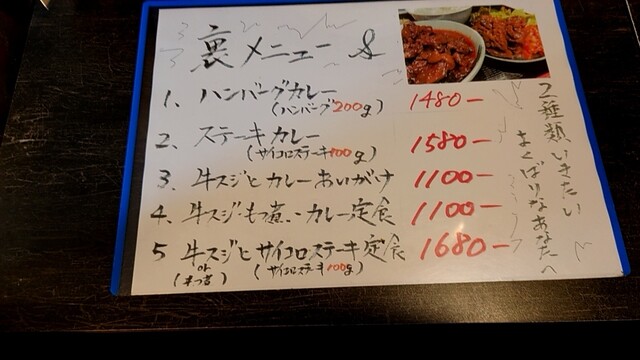 裏メニュー &
1、ハンバーグカレー 1480-
(ハンバーグ200g)
2、ステーキカレー 1580-
(サイコロステーキ100g)
3、牛スジとカレーあいがけ 1100-
4、牛スジ・もつ煮・カレー定食 1100-
5 牛スジとサイコロステーキ定食 1680-
or
(もつ煮) (サイコロステーキ100g)
2種類いきたい
よくばりなあなたへ